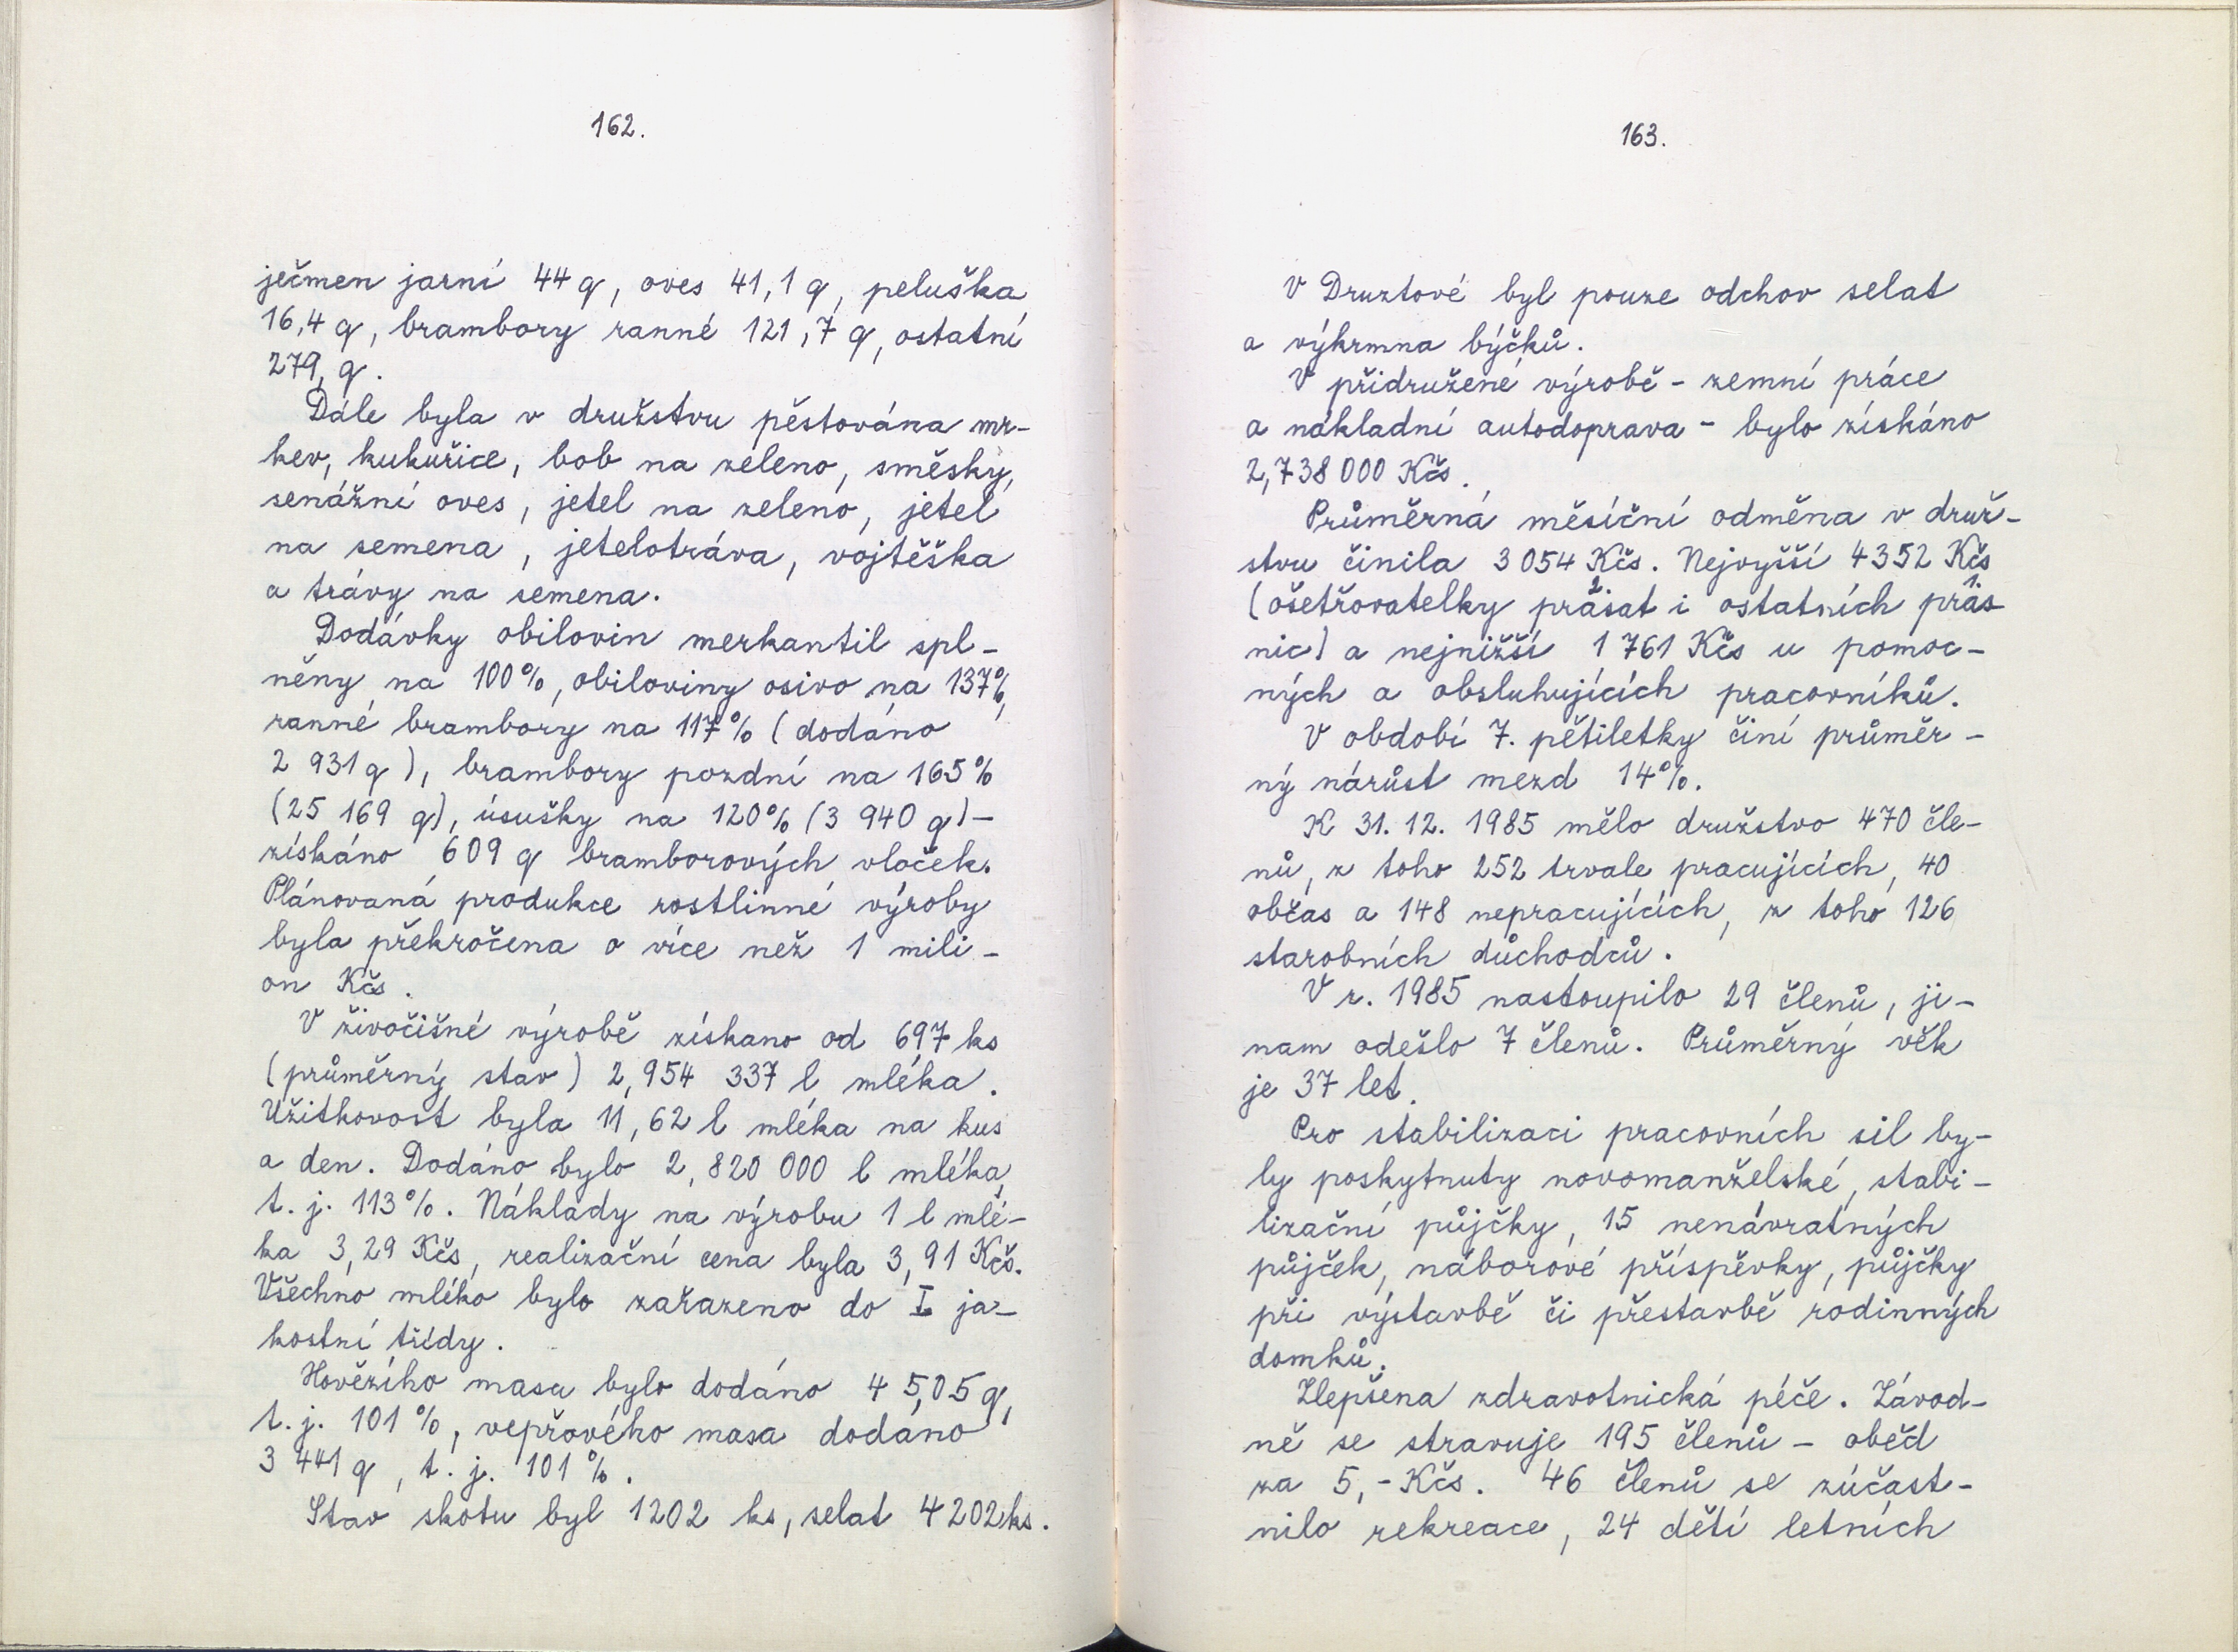 162.
ječmen jarní 44 q, oves 41,1 q, peluška
16,4 q, brambory ranné 121,7 q, ostatní
279, q.
Dále byla v družstvu pěstována mr-
kev, kukuřice, bob na zeleno, směsky,
senážní oves, jetel na zeleno, jetel
na semena, jetelotráva, vojtěška
a trávy na semena.
Dodávky obilovin merkantil spl-
něny na 100%, obiloviny osivo na 137%,
ranné brambory na 117% (dodáno
2 931 q), brambory pozdní na 165%
(25 169 q), úsušky na 120% (3 940 q) -
získáno 609 q bramborových vloček.
Plánovaná produkce rostlinné výroby
byla překročena o více než 1 mili-
on Kčs.
V živočišné výrobě získano od 697 ks
(průměrný stav) 2,954 337 l mléka.
Užitkovost byla 11,62 l mléka na kus
a den. Dodáno bylo 2,820 000 l mléka,
t. j. 113%. Náklady na výrobu 1 l mlé-
ka 3,29 Kčs, realizační cena byla 3,91 Kčs.
Všechno mléko bylo zařazeno do I ja-
kostní třídy.
Hovězího masa bylo dodáno 4 5,05 q,
t. j. 101%, vepřového masa dodáno
3 441 q, t. j. 101%.
Stav skotu byl 1202 ks, selat 4202 ks.
163.
V Druztové byl pouze odchov selat
a výkrmna býčků.
V přidružené výrobě - zemní práce
a nákladní autodoprava - bylo získáno
2,738 000 Kčs.
Průměrná měsíční odměna v druž-
stvu činila 3 054 Kčs. Nejvyšší 4352 Kčs
(ošetřovatelky 2. prasat i ostatních 1. pras
nic) a nejnižší 1 761 Kčs u pomoc-
ných a obsluhujících pracovníků.
V období 7. pětiletky činí průměr-
ný nárůst mezd 14%.
K 31. 12. 1985 mělo družstvo 470 čle-
nů, z toho 252 trvale pracujících, 40
občas a 148 nepracujících, z toho 126
starobních důchodců.
V r. 1985 nastoupilo 29 členů, ji-
nam odešlo 7 členů. Průměrný věk
je 37 let.
Pro stabilizaci pracovních sil by-
ly poskytnuty novomanželské, stabi-
lizační půjčky, 15 nenávratných
půjček, náborové příspěvky, půjčky
při výstavbě či přestavbě rodinných
domků.
Zlepšena zdravotnická péče. Závod-
ně se stravuje 195 členů - oběd
za 5,- Kčs. 46 členů se zúčast-
nilo rekreace, 24 dětí letních